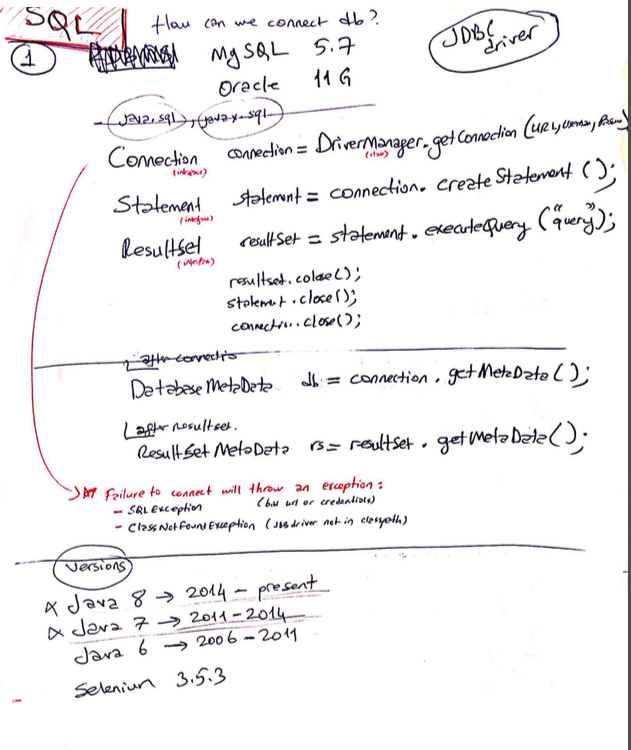 SQL
How can we connect db?
JDBC driver
1
MySQL 5.7
Oracle 11G
- java.sql, javax.sql
Connection connection = DriverManager.getConnection (URL, Username, Passw
(interface) (class)
Statement statement = connection. createStatement ();
(interface)
ResultSet resultSet = statement. executeQuery ("query");
(interface)
resultset. colose();
statement. close();
connection. close();
after connectio
DatabaseMetaData db = connection. getMetaData();
after resultset.
ResultSetMetaData rs = resultset. getMetaData();
Failure to connect will throw an exception:
- SQLException (bad url or credentials)
- ClassNotFoundException (JDB driver not in classpath)
Versions
Java 8 → 2014 - present
Java 7 → 2011-2014
Java 6 → 2006-2011
Selenium 3.5.3